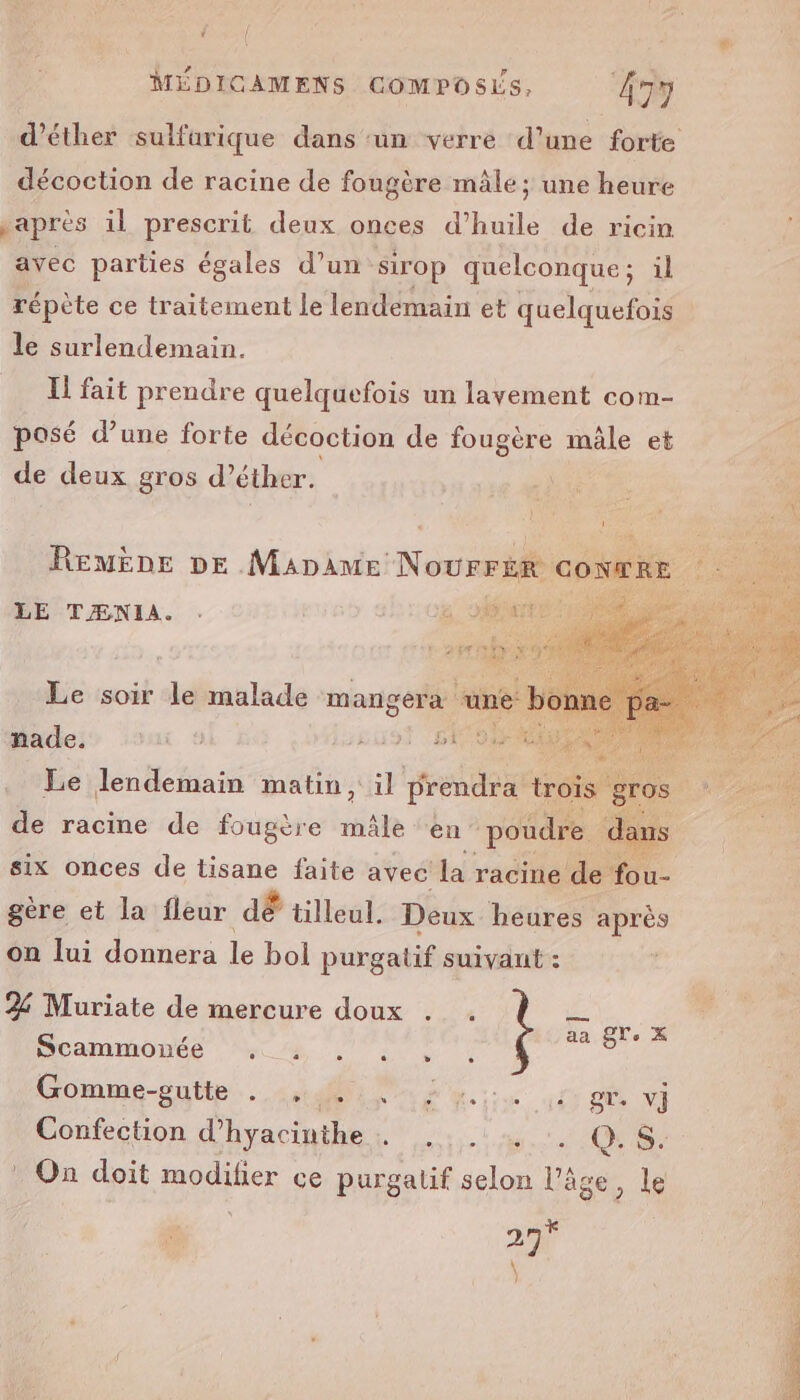 MÉDICAMENS COMPOSÉS, 477
d'éther sulfurique dans un verre d'une forte
décoction de racine de fougère mâle; une heure
après il prescrit deux onces d'huile de ricin
avec parties égales d'un sirop quelconque; il
répète ce traitement le lendemain et quelquefois
le surlendemain.
Il fait prendre quelquefois un lavement com-
posé d'une forte décoction de fougère mâle et
de deux gros d'éther.
REMÈDE DE MADAME NOUFFER CONTRE
LE TÆNIA.
Le soir le malade mangera une bonne pa-
nade.
Le lendemain matin, il prendra trois gros
de racine de fougère mâle en poudre dans
six onces de tisane faite avec la racine de fou-
gère et la fleur de tilleul. Deux heures après
on lui donnera le bol purgatif suivant :
♃ Muriate de mercure doux . . } aa gr. x
Scammonée . . . . . .
Gomme-gutte . . . . . . . . gr. vj
Confection d'hyacinthe . . . . . Q. S.
On doit modifier ce purgatif selon l'âge, le
27*